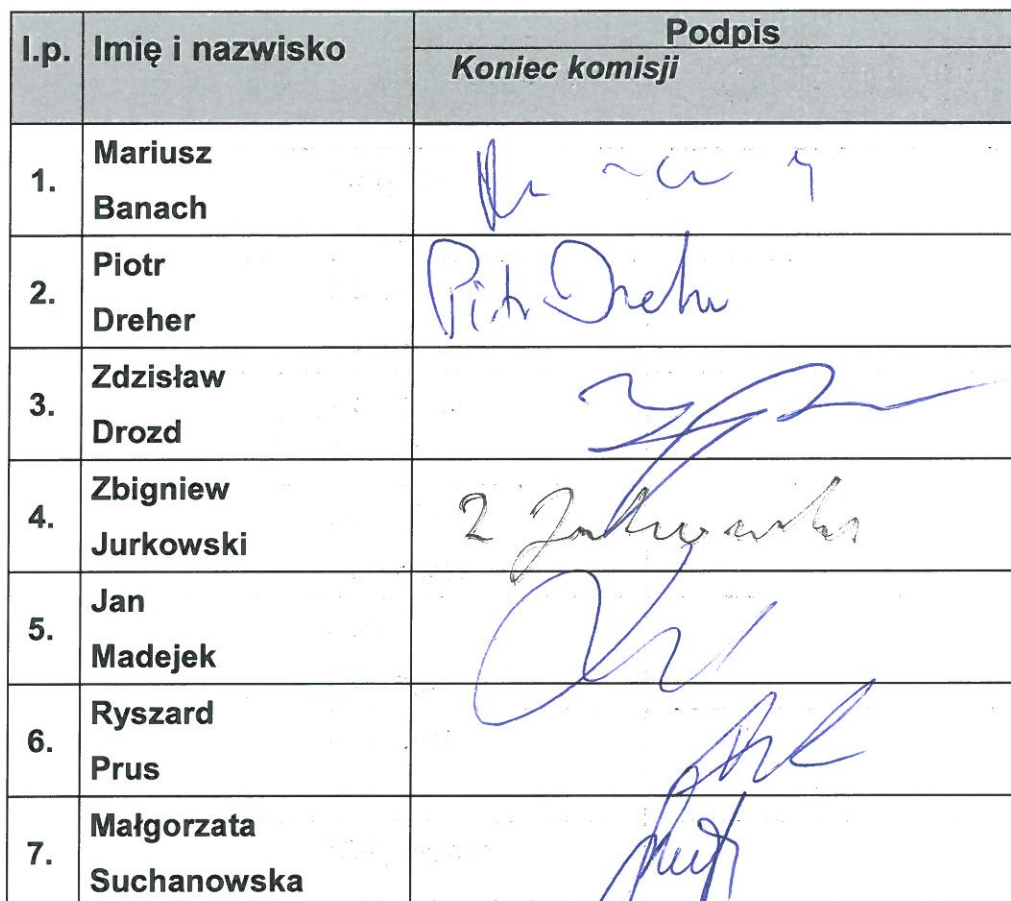 l.p. Imię i nazwisko Podpis
Koniec komisji
1. Mariusz
Banach
2. Piotr
Dreher
Piotr Dreher
3. Zdzisław
Drozd
4. Zbigniew
Jurkowski
Z Jurkowski
5. Jan
Madejek
6. Ryszard
Prus
7. Małgorzata
Suchanowska